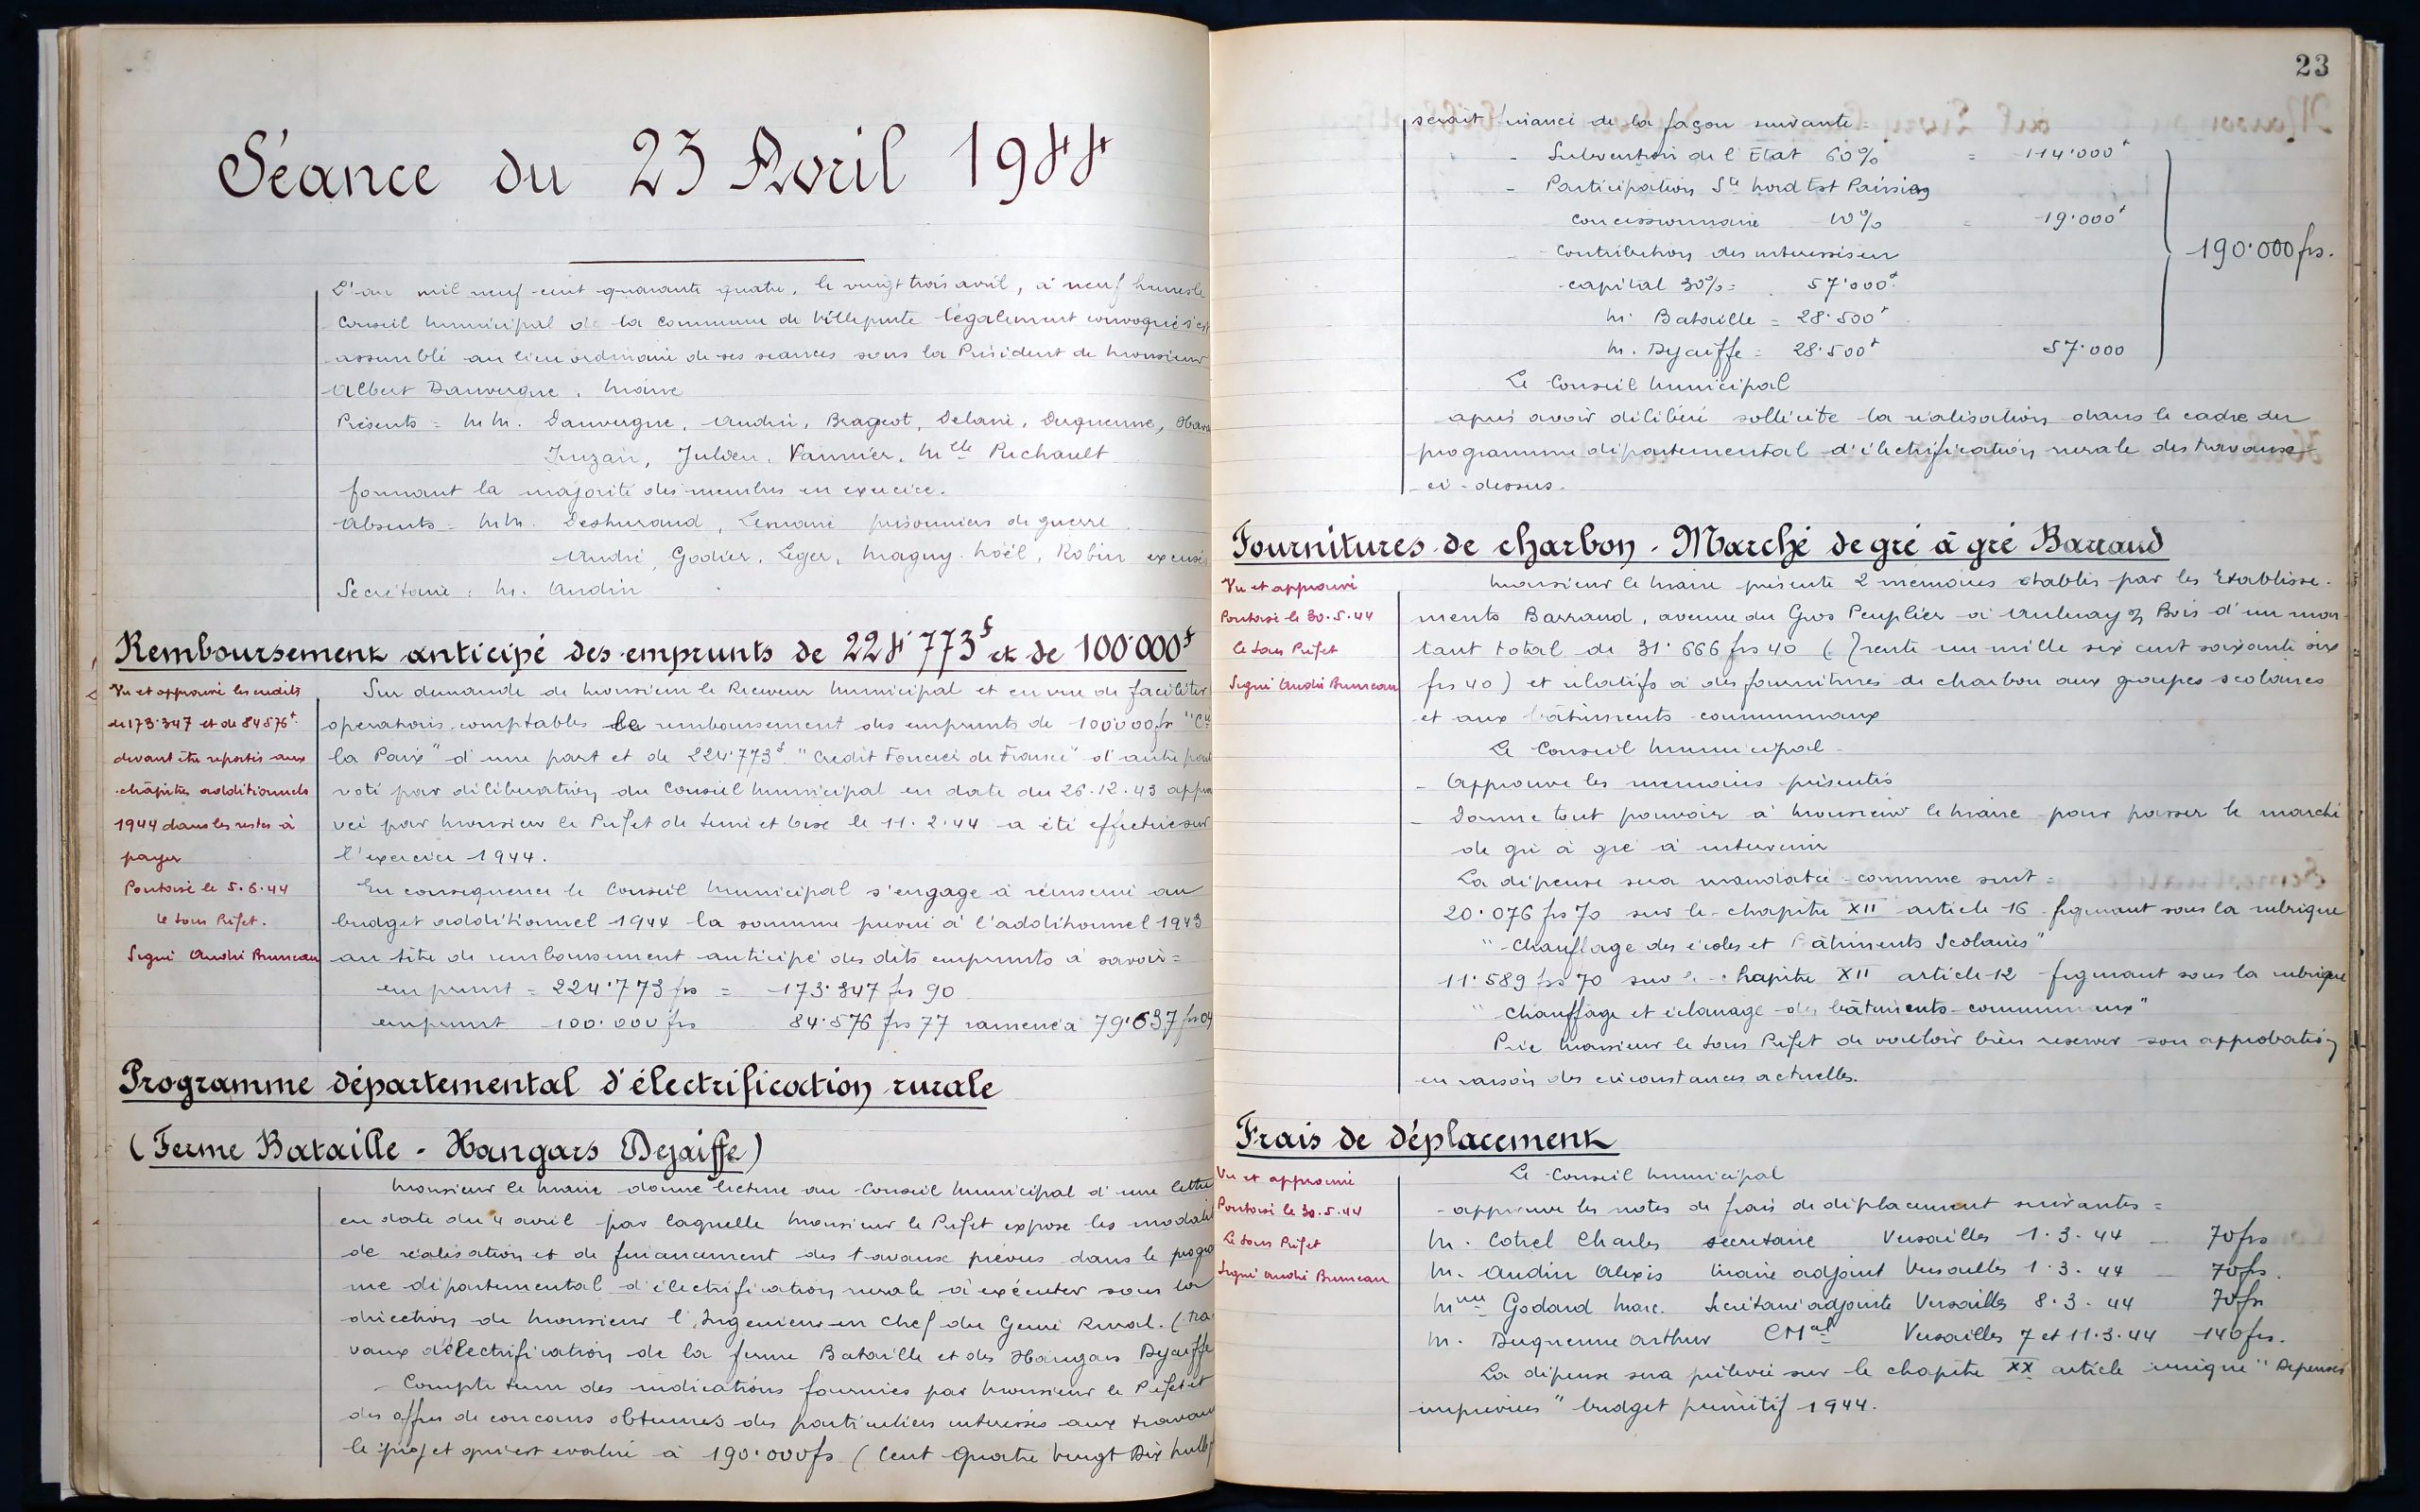 Séance du 23 Avril 1944
L'an mil neuf cent quarante quatre, le vingt trois avril, à neuf heures le
Conseil Municipal de la commune de Villepinte légalement convoqué s'est
assemblé au lieu ordinaire de ses séances sous la Président de Monsieur
Albert Dauvergne, Maire
Présents = MM. Dauvergne, Audin, Brageot, Delarié, Duquenne,
Juzan, Julien, Vannier, Melle Richault
formant la majorité des membres en exercice.
Absents = MM. Deshuraud, Lemarié prisonniers de guerre
André, Godier, Leger, Magny, Noël, Robin excusés
Secrétaire : M. Audin
Remboursement anticipé des emprunts de 224'773f et de 100'000f
Vu et approuvé les crédits
de 173'347 et de 84576f
devant être reportés aux
chapitres additionnels
1944 dans les restes à
payer
Pontoise le 5.6.44
le Sous Préfet.
Signé André Bruneau
Sur demande de Monsieur le Receveur Municipal et en vue de faciliter
opérations comptables le remboursement des emprunts de 100'000frs "Cie
la Paix" d'une part et de 224'773f "Crédit Foncier de France" d'autre part
voté par délibération du Conseil Municipal en date du 26.12.43 approu
vée par Monsieur le Préfet de Seine et Oise le 11.2.44 a été effectué sur
l'exercice 1944.
En conséquence le Conseil Municipal s'engage à réinscrire au
budget additionnel 1944 la somme prévue à l'additionnel 1943
au titre de remboursement anticipé des dits emprunts à savoir =
emprunt = 224'773 frs = 173'347 frs 90
emprunt 100'000 frs 84'576 frs 77 ramené à 79'637 frs 04
Programme départemental d'électrification rurale
(Ferme Bataille - Hangars Dejaiffe)
Monsieur le Maire donne lecture au Conseil Municipal d'une lettre
en date du 4 avril par laquelle Monsieur le Préfet expose les modalit
de réalisation et de financement des travaux prévus dans le progra
me départemental d'électrification rurale à exécuter sous la
direction de Monsieur l'Ingénieur en Chef du Génie Rural. (Tra-
vaux d'électrification de la ferme Bataille et des Hangars Dejaiffe
- Compte tenu des indications fournies par Monsieur le Préfet et
des offres de concours obtenues des particuliers intéressés aux travaux
le projet qui est évalué à 190'000frs (Cent Quatre Vingt Dix mille
23
serait financé de la façon suivante =
- Subvention de l'Etat 60% = 114'000f
- Participation Sté Nord Est Parisien
concessionnaire 10% = 19'000f
- Contribution des intéressés en
capital 30% = 57'000f
190'000 frs.
M. Bataille = 28'500f
M. Dejaiffe = 28'500f 57'000
Le Conseil Municipal
après avoir délibéré sollicite la réalisation dans le cadre du
programme départemental d'électrification rurale des travaux
ci-dessus.
Fournitures de charbon - Marché de gré à gré Barraud
Vu et approuvé
Pontoise le 30.5.44
le Sous Préfet
Signé André Bruneau
Monsieur le Maire présente 2 mémoires établis par les Etablisse-
ments Barraud, avenue du Gros Peuplier à Aulnay s/ Bois d'un mon-
tant total de 31'666 frs 40 (Trente un mille six cent soixante six
frs 40) et relatifs à des fournitures de charbon aux groupes scolaires
et aux bâtiments communaux
Le Conseil Municipal
- Approuve les mémoires présentés
- Donne tout pouvoir à Monsieur le Maire pour passer le marché
de gré à gré à intervenir
La dépense sera mandatée comme suit =
20'076 frs 70 sur le chapitre XII article 16 figurant sous la rubrique
"Chauffage des écoles et Bâtiments Scolaires"
11'589 frs 70 sur le chapitre XII article 12 figurant sous la rubrique
"Chauffage et éclairage des bâtiments communaux"
Prie Monsieur le Sous Préfet de vouloir bien réserver son approbation
en raison des circonstances actuelles.
Frais de déplacement
Vu et approuvé
Pontoise le 30.5.44
Le Sous Préfet
Signé André Bruneau
Le Conseil Municipal
- approuve les notes de frais de déplacement suivantes =
M. Cotrel Charles secrétaire Versailles 1.3.44 - 70frs
M. Audin Alexis Maire adjoint Versailles 1.3.44 - 70frs.
Mme Godard Marc. Secrétaire adjointe Versailles 8.3.44 70frs
M. Duquenne Arthur CMal Versailles 7 et 11.3.44 140frs.
La dépense sera prélevée sur le chapitre XX article unique "Dépenses
imprévues" budget primitif 1944.